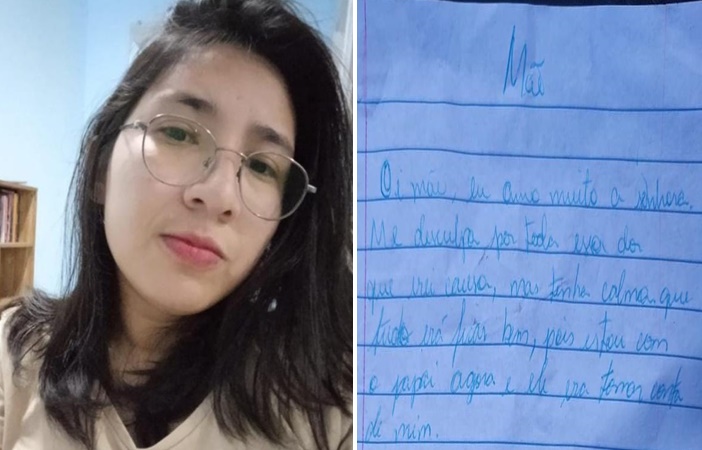 Mãe
Oi mãe, eu amo muito a senhora.
Me desculpa por toda essa dor
que irei causa, mas tenha calma que
tudo irá ficar bem, pois estou com
o papai agora e ele ira tomar conta
de mim.